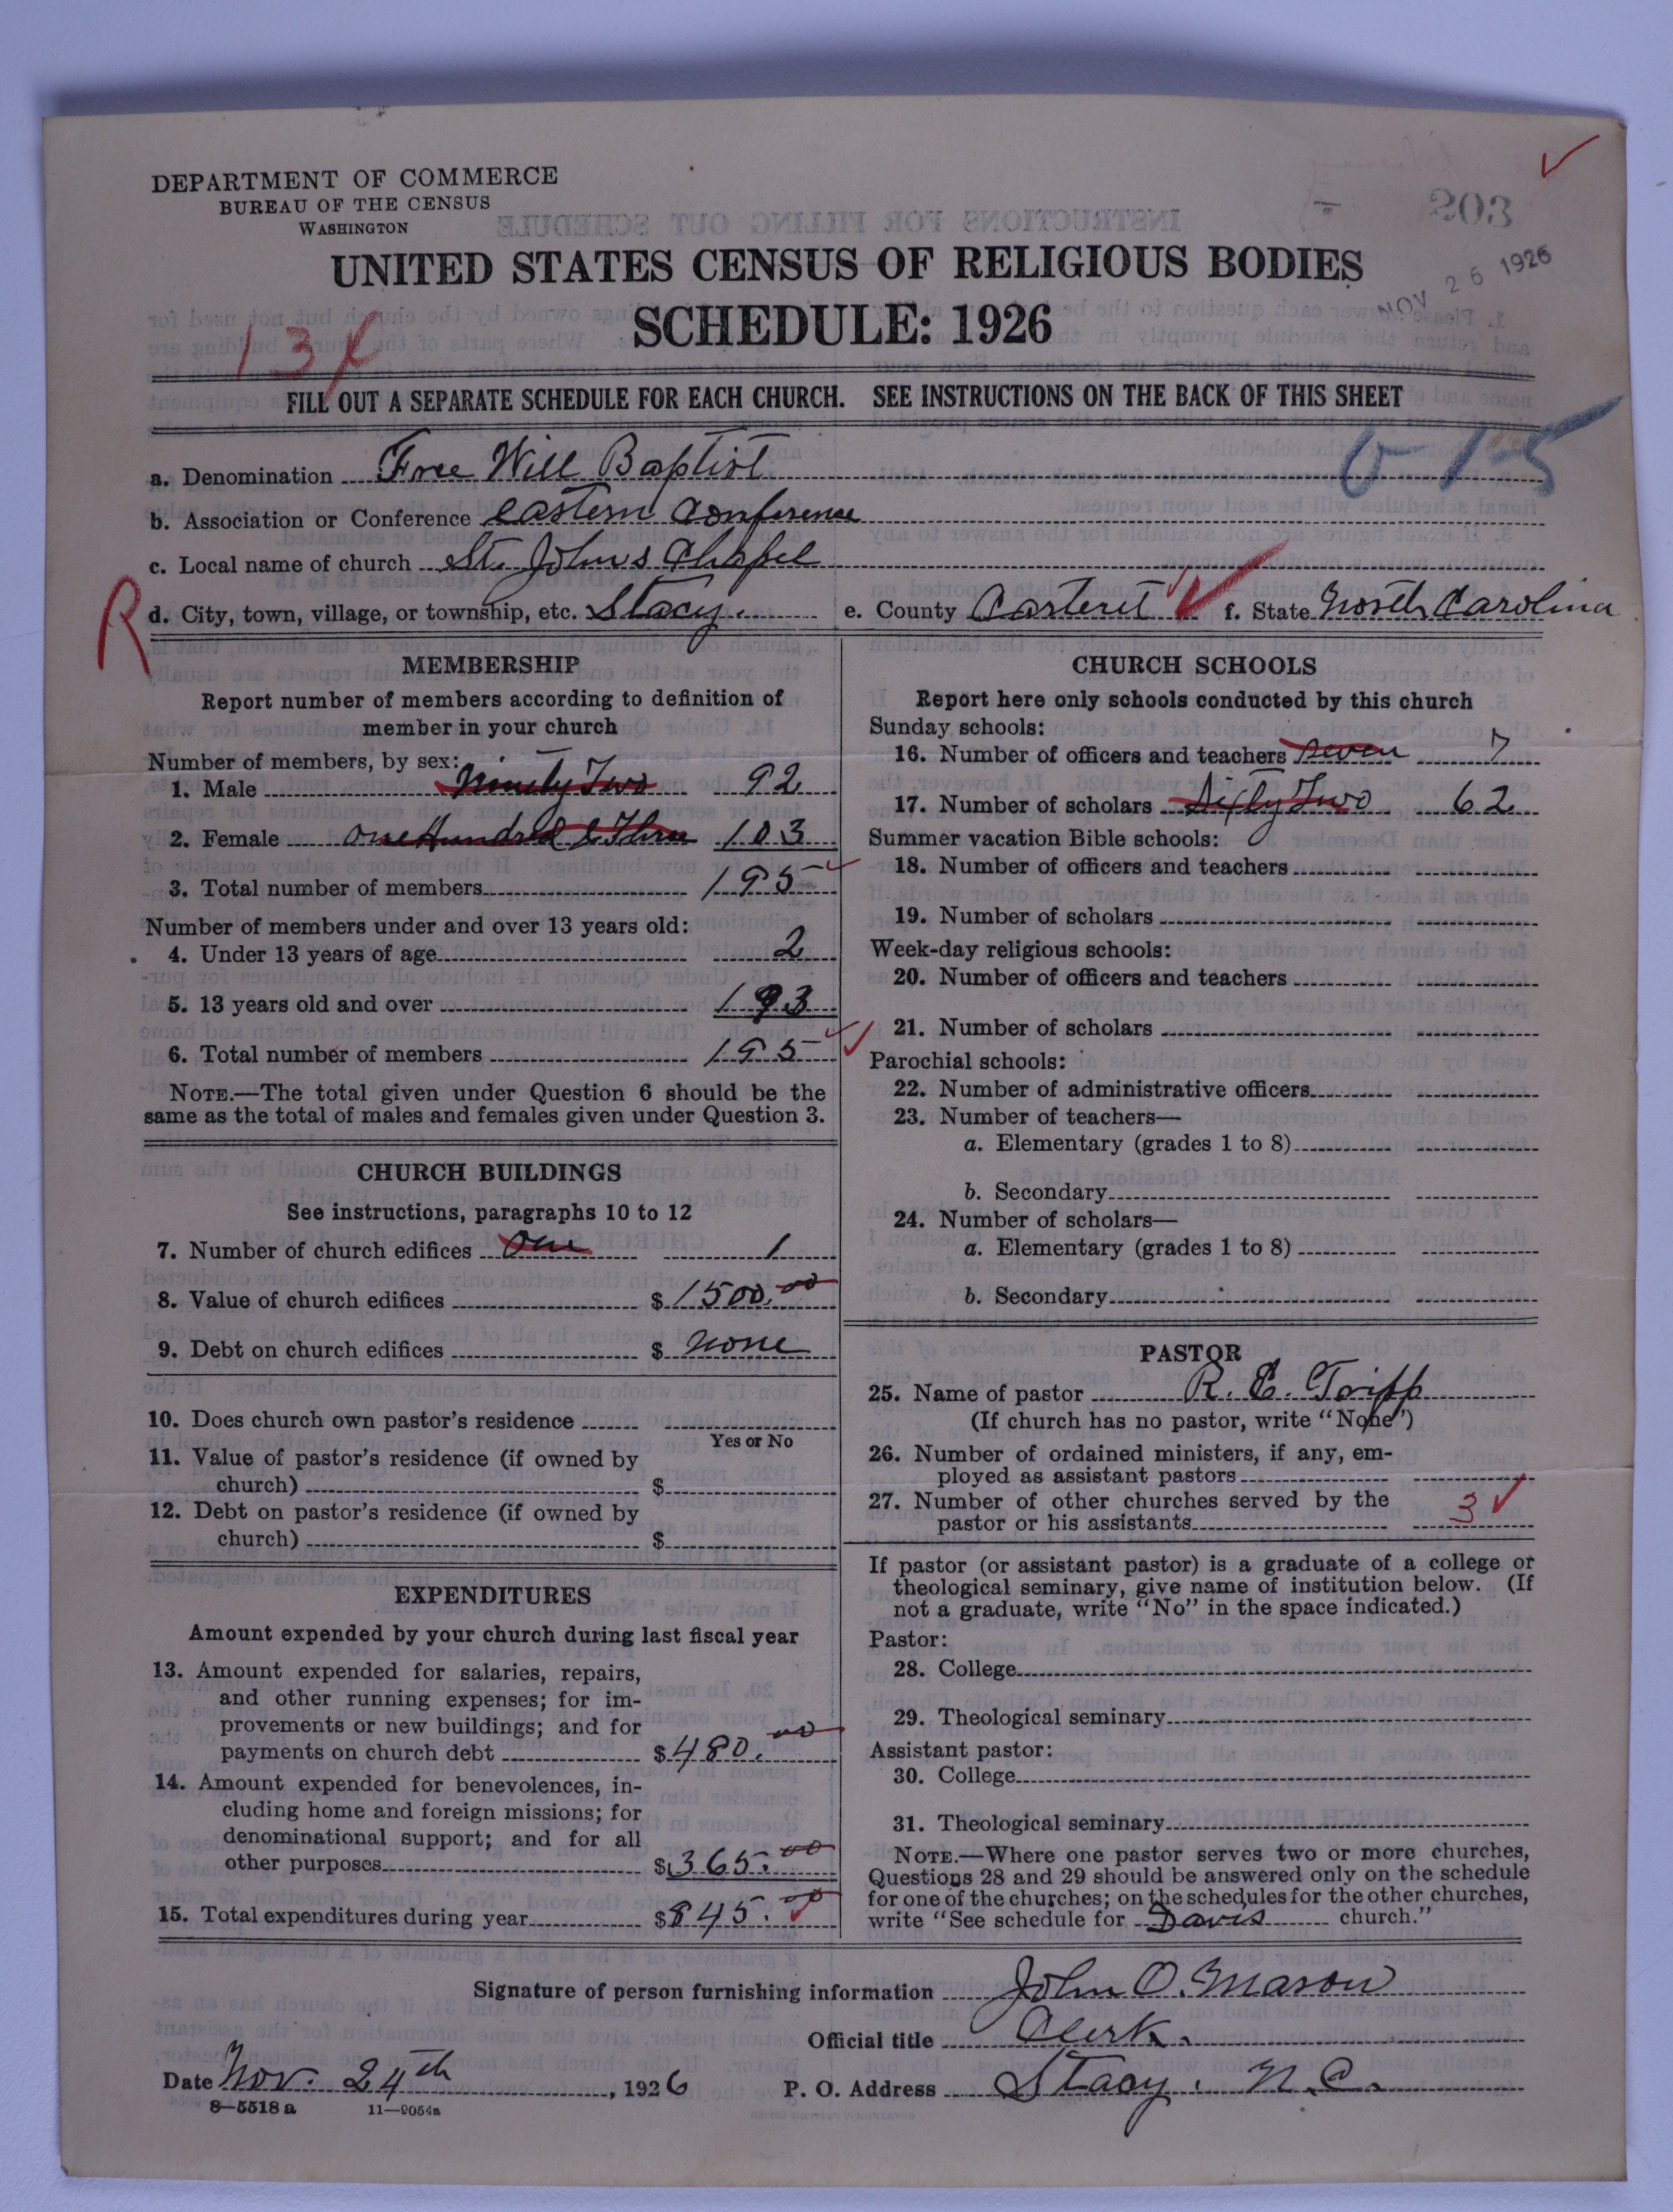 DEPARTMENT OF COMMERCE
BUREAU OF THE CENSUS
WASHINGTON
203
NOV 26 1926
UNITED STATES CENSUS OF RELIGIOUS BODIES
SCHEDULE: 1926
FILL OUT A SEPARATE SCHEDULE FOR EACH CHURCH. SEE INSTRUCTIONS ON THE BACK OF THIS SHEET
a. Denomination Free Will Baptist
b. Association or Conference eastern Conference
c. Local name of church St. Johns Chapel
R
d. City, town, village, or township, etc. Stacy. e. County Carteret f. State North Carolina
MEMBERSHIP
Report number of members according to definition of
member in your church
Number of members, by sex:
1. Male Ninety Two 92
2. Female One Hundred & Three 103
3. Total number of members 195
Number of members under and over 13 years old:
4. Under 13 years of age 2
5. 13 years old and over 193
6. Total number of members 195
NOTE.—The total given under Question 6 should be the
same as the total of males and females given under Question 3.
CHURCH BUILDINGS
See instructions, paragraphs 10 to 12
7. Number of church edifices One 1
8. Value of church edifices $ 1500.00
9. Debt on church edifices $ none
10. Does church own pastor's residence
Yes or No
11. Value of pastor's residence (if owned by
church) $
12. Debt on pastor's residence (if owned by
church) $
EXPENDITURES
Amount expended by your church during last fiscal year
13. Amount expended for salaries, repairs,
and other running expenses; for im-
provements or new buildings; and for
payments on church debt $ 480.00
14. Amount expended for benevolences, in-
cluding home and foreign missions; for
denominational support; and for all
other purposes $ 365.00
15. Total expenditures during year $ 845.00
CHURCH SCHOOLS
Report here only schools conducted by this church
Sunday schools:
16. Number of officers and teachers seven 7
17. Number of scholars Sixty Two 62
Summer vacation Bible schools:
18. Number of officers and teachers
19. Number of scholars
Week-day religious schools:
20. Number of officers and teachers
21. Number of scholars
Parochial schools:
22. Number of administrative officers
23. Number of teachers—
a. Elementary (grades 1 to 8)
b. Secondary
24. Number of scholars—
a. Elementary (grades 1 to 8)
b. Secondary
PASTOR
25. Name of pastor R. C. Tripp
(If church has no pastor, write "None")
26. Number of ordained ministers, if any, em-
ployed as assistant pastors
27. Number of other churches served by the
pastor or his assistants 3
If pastor (or assistant pastor) is a graduate of a college or
theological seminary, give name of institution below. (If
not a graduate, write "No" in the space indicated.)
Pastor:
28. College
29. Theological seminary
Assistant pastor:
30. College
31. Theological seminary
NOTE.—Where one pastor serves two or more churches,
Questions 28 and 29 should be answered only on the schedule
for one of the churches; on the schedules for the other churches,
write "See schedule for Davis church."
Signature of person furnishing information John O. Mason
Official title Clerk.
Date Nov. 24th, 1926 P. O. Address Stacy. N.C.
8—5518 a 11—9054a